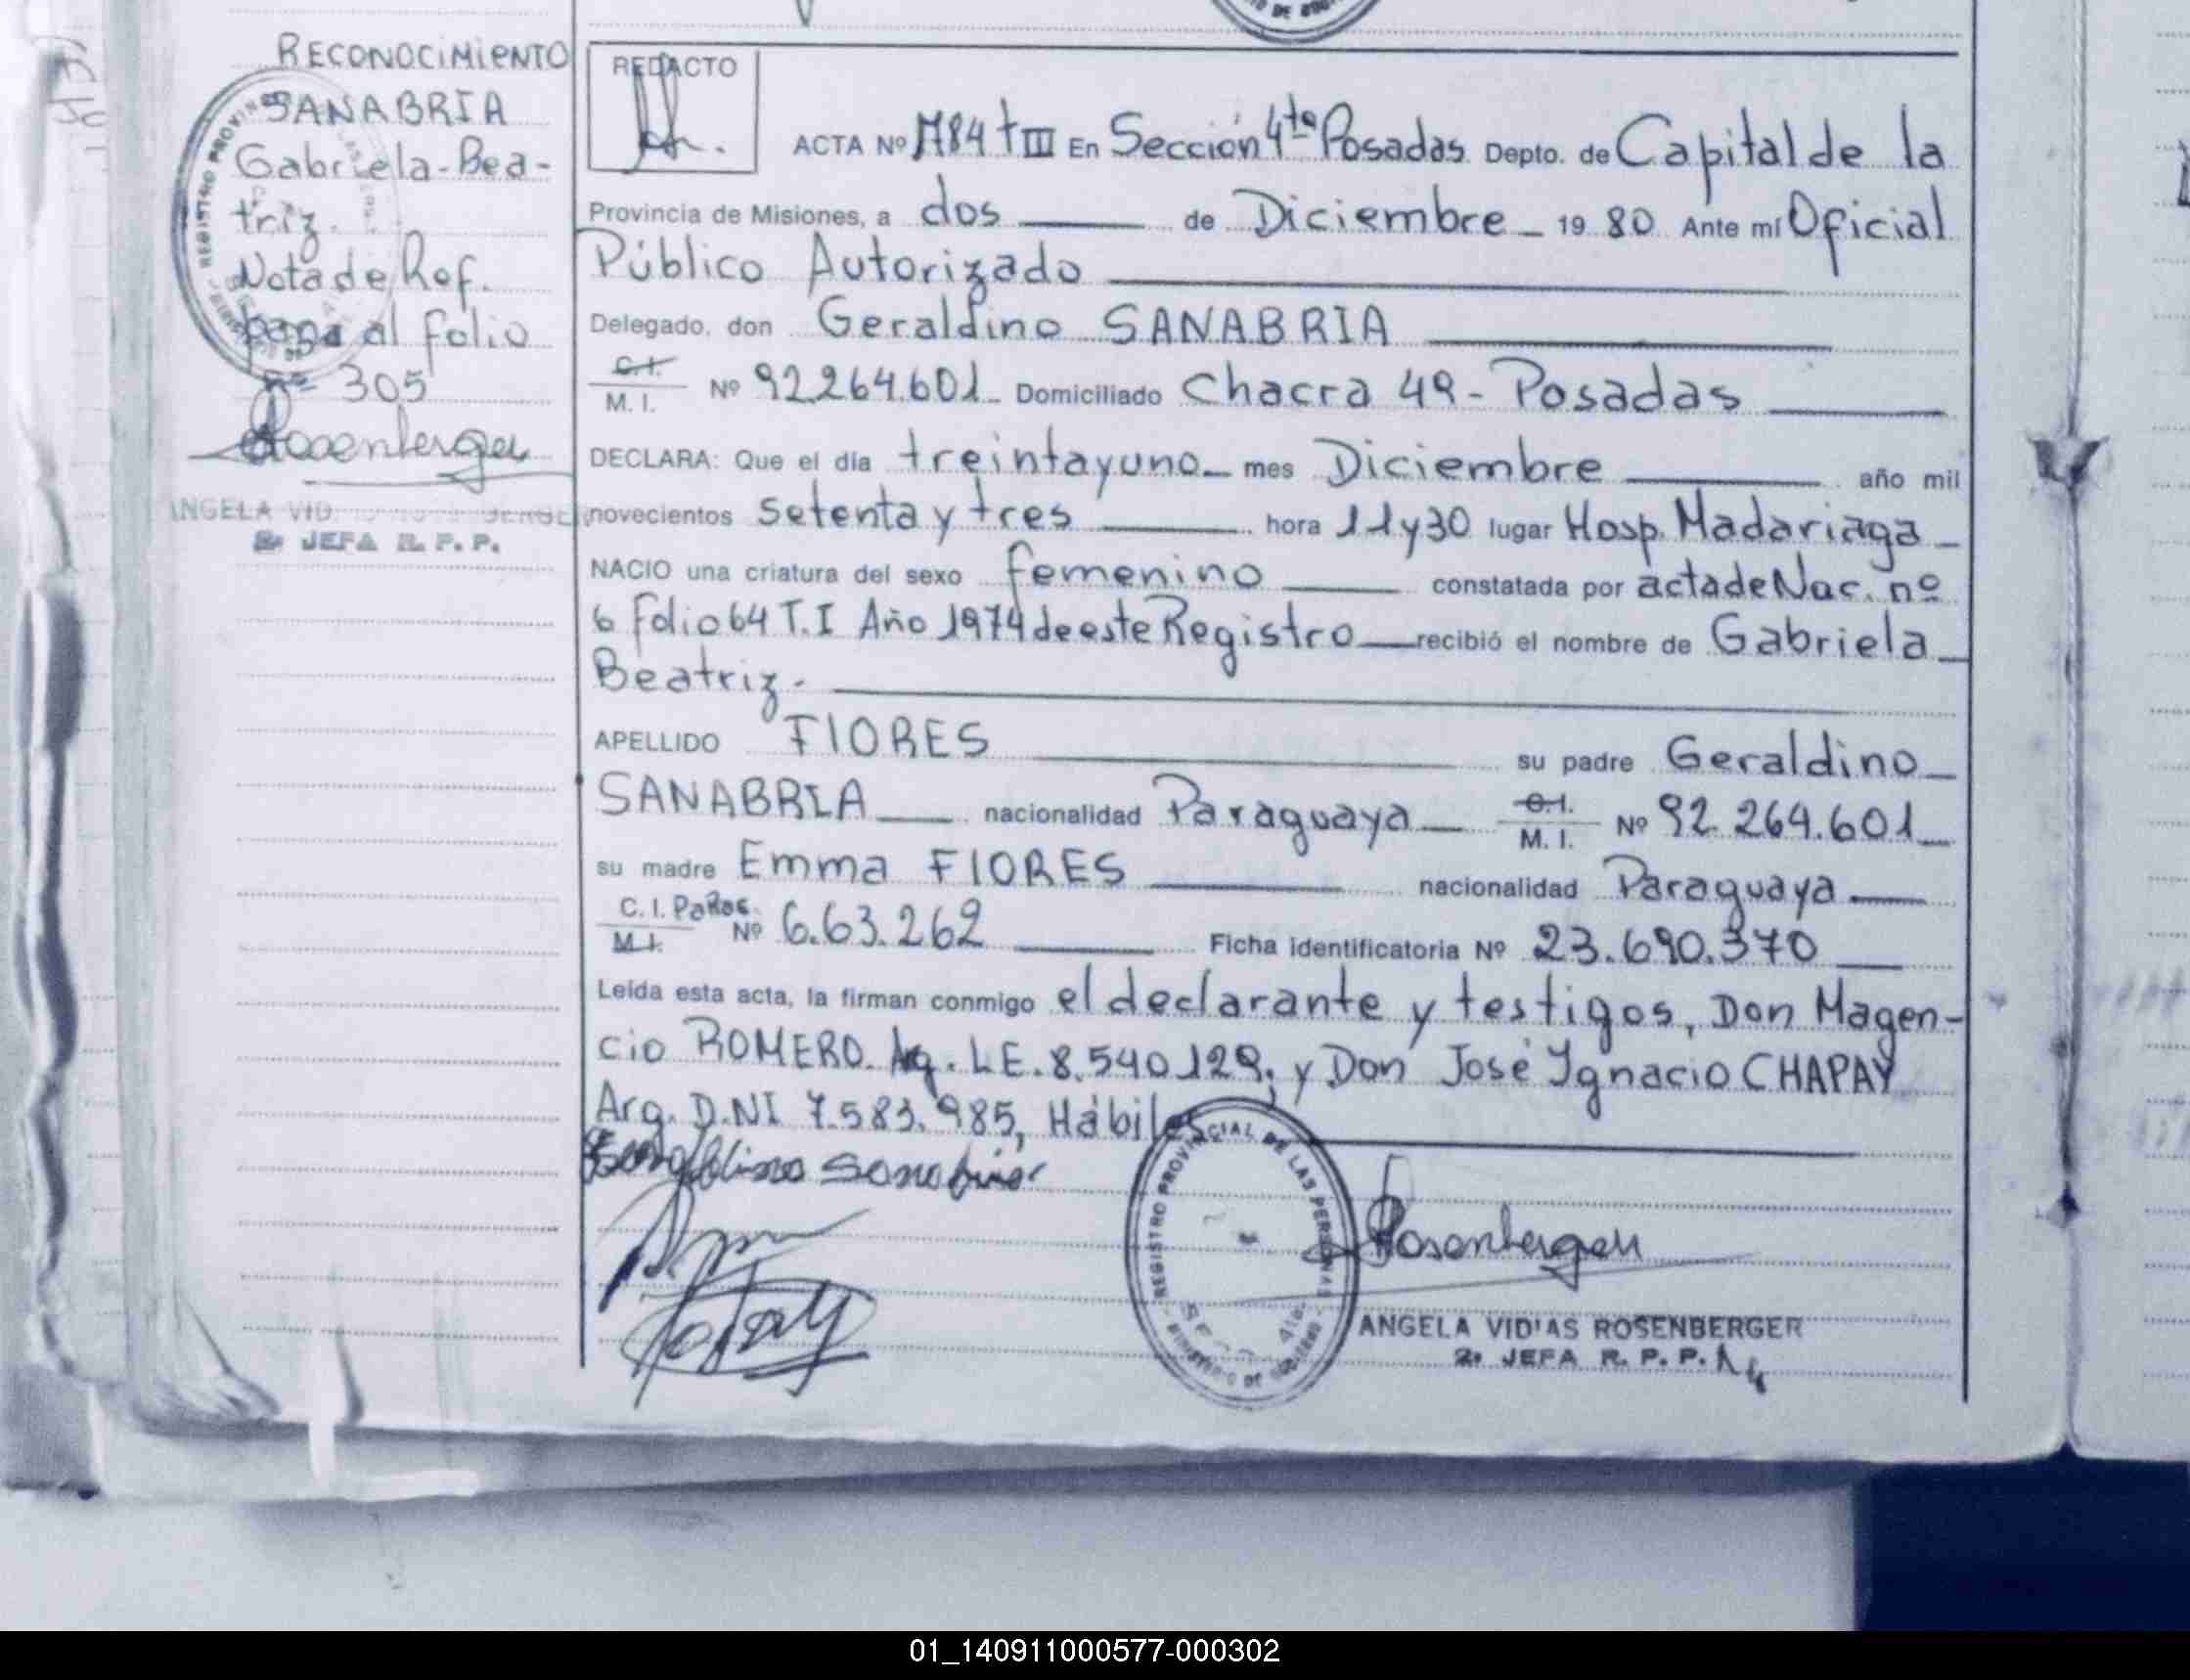 RECONOCIMIENTO
SANABRIA
Gabriela-Bea-
triz.
Nota de Ref.
pasa al folio
nº 305
Rosenberger
ANGELA VID
2ª JEFA R. P. P.
REDACTO
ACTA Nº 1184 tIII En Sección 4ta Posadas Depto. de Capital de la
Provincia de Misiones, a dos de Diciembre 19 80 Ante mí Oficial
Público Autorizado
Delegado, don Geraldino SANABRIA
C.I. M. I. Nº 92.264.601 Domiciliado Chacra 49 - Posadas
DECLARA: Que el día treinta y uno mes Diciembre año mil
novecientos setenta y tres hora 11 y 30 lugar Hosp. Madariaga
NACIO una criatura del sexo femenino constatada por acta de Nac. nº
6 Folio 64 T.I Año 1974 de este Registro recibió el nombre de Gabriela
Beatriz.
APELLIDO FlORES su padre Geraldino
SANABRIA nacionalidad Paraguaya C.I. M. I. Nº 92.264.601
su madre Emma FlORES nacionalidad Paraguaya
C. I. M.I. Nº 6.63.262 Ficha identificatoria Nº 23.690.370
Leída esta acta, la firman conmigo el declarante y testigos, Don Magen-
cio ROMERO. Arg. L.E. 8.540.129, y Don José Ignacio CHAPAY
Arg. D.NI 7.583.985, Hábiles
REGISTRO PROVINCIAL DE LAS PERSONAS
Rosenberger
ANGELA VIDIAS ROSENBERGER
2ª JEFA R. P. P.
01_140911000577-000302